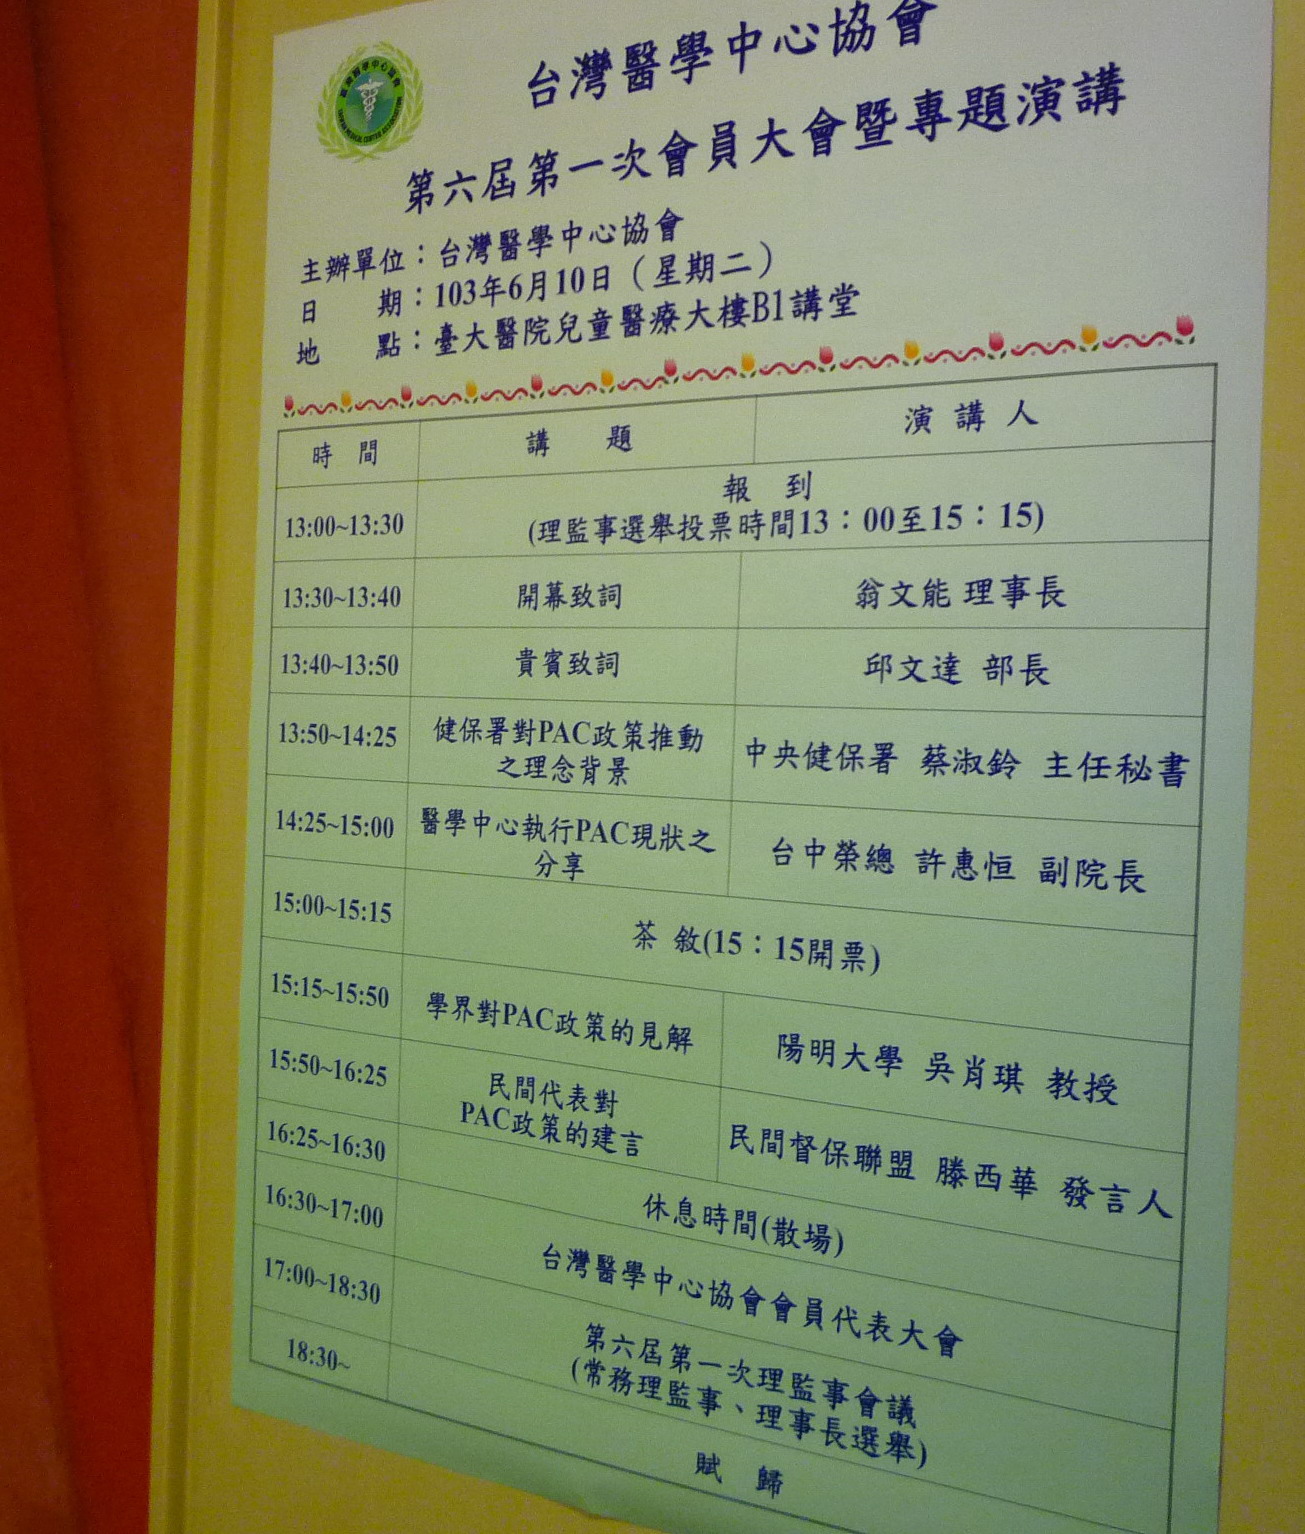 台灣醫學中心協會
第六屆第一次會員大會暨專題演講
主辦單位：台灣醫學中心協會
日 期：103年6月10日（星期二）
地 點：臺大醫院兒童醫療大樓B1講堂
時 間 講 題 演 講 人
13:00~13:30 報 到
(理監事選舉投票時間13：00至15：15)
13:30~13:40 開幕致詞 翁文能 理事長
13:40~13:50 貴賓致詞 邱文達 部長
13:50~14:25 健保署對PAC政策推動
之理念背景 中央健保署 蔡淑鈴 主任秘書
14:25~15:00 醫學中心執行PAC現狀之
分享 台中榮總 許惠恒 副院長
15:00~15:15 茶 敘(15：15開票)
15:15~15:50 學界對PAC政策的見解 陽明大學 吳肖琪 教授
15:50~16:25 民間代表對
PAC政策的建言 民間督保聯盟 滕西華 發言人
16:25~16:30 休息時間(散場)
16:30~17:00 台灣醫學中心協會會員代表大會
17:00~18:30 第六屆第一次理監事會議
(常務理監事、理事長選舉)
18:30~ 賦 歸